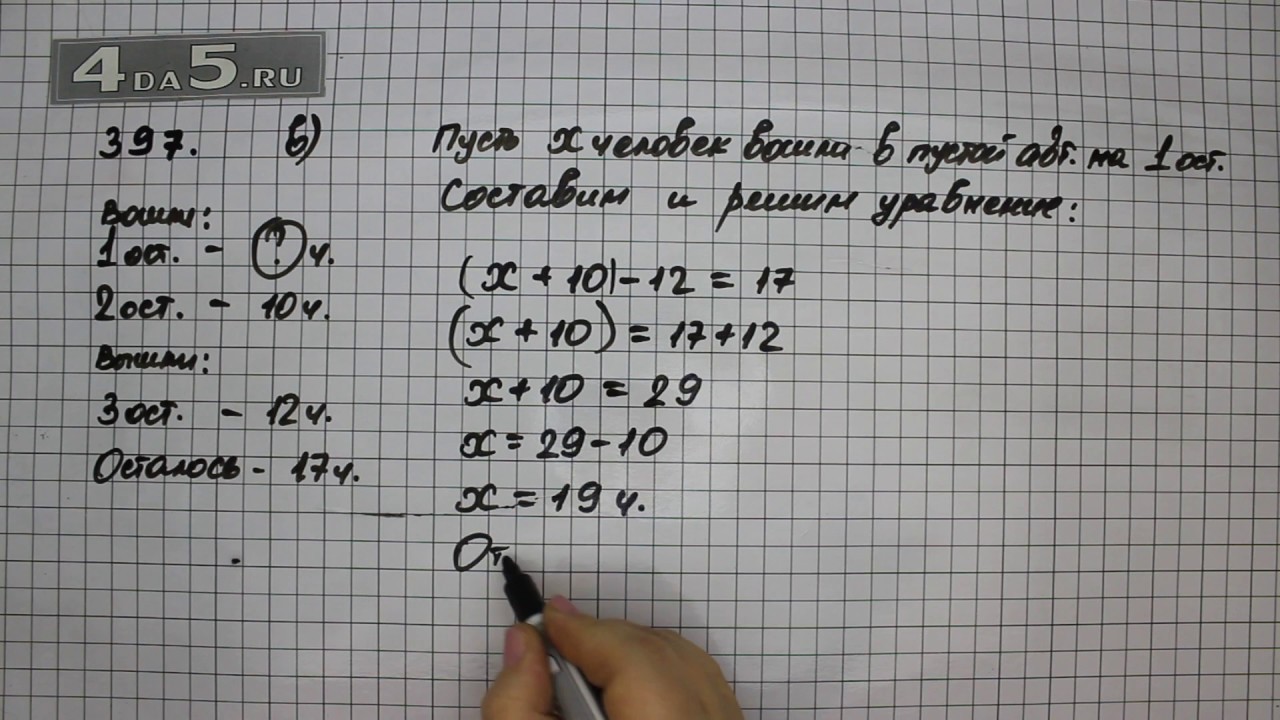 4DA5.RU
397. в)
Вошли:
1 ост. - ? ч.
2 ост. - 10 ч.
Вышли:
3 ост. - 12 ч.
Осталось - 17 ч.
Пусть x человек вошли в пустой авт. на 1 ост.
Составим и решим уравнение:
(x + 10) - 12 = 17
(x + 10) = 17 + 12
x + 10 = 29
x = 29 - 10
x = 19 ч.
От